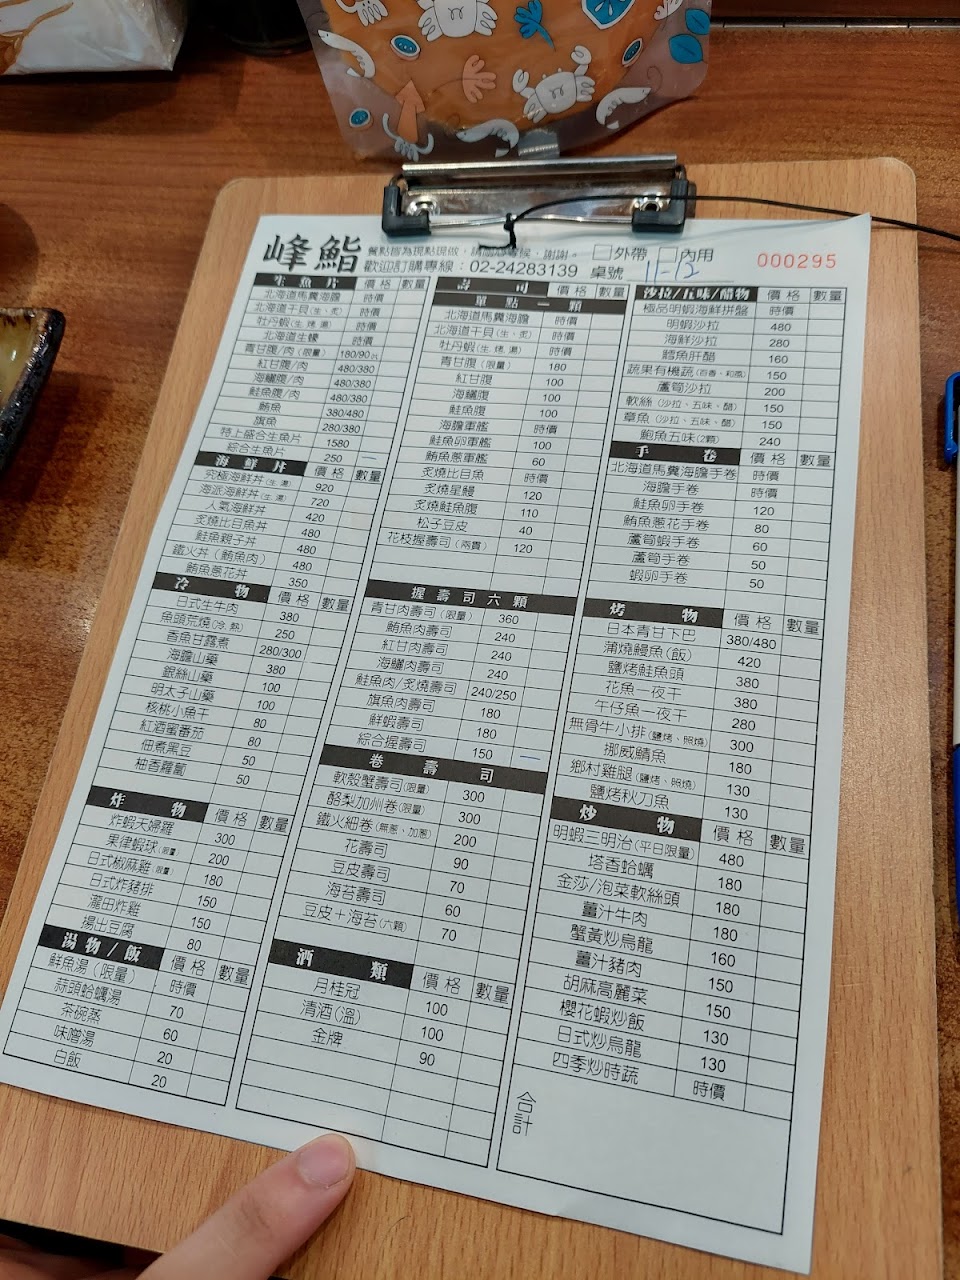 峰鮨
餐點皆為現點現做，請耐心等候，謝謝。
歡迎訂購專線：02-24283139
外帶 內用
桌號 11-12
000295
生魚片 價格 數量
北海道馬糞海膽 時價
北海道干貝(生、炙) 時價
牡丹蝦(生.烤.湯) 時價
北海道生蠔 時價
青甘腹/肉(限量) 180/90
紅甘腹/肉 480/380
海鱺腹/肉 480/380
鮭魚腹/肉 480/380
鮪魚 380/480
旗魚 280/380
特上盛合生魚片 1580
綜合生魚片 250 一
海鮮丼 價格 數量
究極海鮮丼(生.湯) 920
海派海鮮丼(生.湯) 720
人氣海鮮丼 420
炙燒比目魚丼 480
鮭魚親子丼 480
鐵火丼(鮪魚肉) 480
鮪魚蔥花丼 350
冷物 價格 數量
日式生牛肉 380
魚頭荒燒(冷.熱) 250
香魚甘露煮 280/300
海膽山藥 380
銀絲山藥 100
明太子山藥 100
核桃小魚干 80
紅酒蜜番茄 80
佃煮黑豆 50
柚香蘿蔔 50
炸物 價格 數量
炸蝦天婦羅 300
果律蝦球(限量) 200
日式椒麻雞(限量) 180
日式炸豬排 150
瀧田炸雞 150
揚出豆腐 80
湯物/飯 價格 數量
鮮魚湯(限量) 時價
蒜頭蛤蠣湯 70
茶碗蒸 60
味噌湯 20
白飯 20
壽司 價格 數量
單點一顆
北海道馬糞海膽 時價
北海道干貝(生、炙) 時價
牡丹蝦(生.烤.湯) 時價
青甘腹(限量) 180
紅甘腹 100
海鱺腹 100
鮭魚腹 100
海膽軍艦 時價
鮭魚卵軍艦 100
鮪魚蔥軍艦 60
炙燒比目魚 時價
炙燒星鰻 120
炙燒鮭魚腹 110
松子豆皮 40
花枝握壽司(兩貫) 120
握壽司六顆
青甘肉壽司(限量) 360
鮪魚肉壽司 240
紅甘肉壽司 240
海鱺肉壽司 240
鮭魚肉/炙燒壽司 240/250
旗魚肉壽司 180
鮮蝦壽司 180
綜合握壽司 150 一
卷壽司
軟殼蟹壽司(限量) 300
酪梨加州卷(限量) 300
鐵火細卷(無蔥、加蔥) 200
花壽司 90
豆皮壽司 70
海苔壽司 60
豆皮＋海苔(六顆) 70
酒類 價格 數量
月桂冠 100
清酒(溫) 100
金牌 90
沙拉/五味/醋物 價格 數量
極品明蝦海鮮拼盤 時價
明蝦沙拉 480
海鮮沙拉 280
鱈魚肝醋 160
蔬果有機蔬(百香、和風) 150
蘆筍沙拉 200
軟絲(沙拉、五味、醋) 150
章魚(沙拉、五味、醋) 150
鮑魚五味(2顆) 240
手卷 價格 數量
北海道馬糞海膽手卷 時價
海膽手卷 時價
鮭魚卵手卷 120
鮪魚蔥花手卷 80
蘆筍蝦手卷 60
蘆筍手卷 50
蝦卵手卷 50
烤物 價格 數量
日本青甘下巴 380/480
蒲燒鰻魚(飯) 420
鹽烤鮭魚頭 380
花魚一夜干 380
午仔魚一夜干 280
無骨牛小排(鹽烤、照燒) 300
挪威鯖魚 180
鄉村雞腿(鹽烤、照燒) 130
鹽烤秋刀魚 130
炒物 價格 數量
明蝦三明治(平日限量) 480
塔香蛤蠣 180
金莎/泡菜軟絲頭 180
薑汁牛肉 180
蟹黃炒烏龍 160
薑汁豬肉 150
胡麻高麗菜 150
櫻花蝦炒飯 130
日式炒烏龍 130
四季炒時蔬 時價
合計